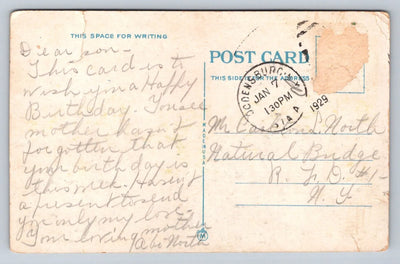 THIS SPACE FOR WRITING
Dear son —
This card is to
wish you a Happy
Birthday. You see
mother hasn't
forgotten that
your birthday is
this week. Haven't
a present to send
you only my love.
Your loving mother
North
POST CARD
THIS SIDE
THE ADDRESS
OGDENSBURG
JAN 7
130PM
STA A
1929
MADE IN USA
Mr. North
Natural Bridge
R. F. D. #1-
N. Y.